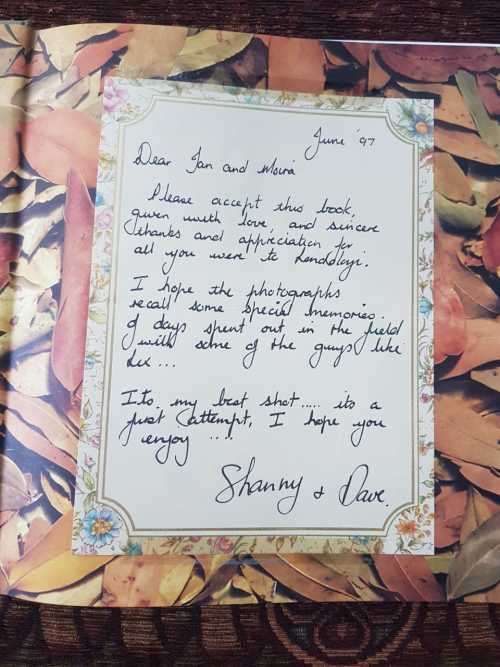 June '97
Dear Jan and Moira
Please accept this book,
given with love, and sincere
thanks and appreciation for
all you were to Londolozi.
I hope the photographs
recall some special memories.
of days spent out in the field
with some of the guys like
Lex ...
Its my best shot..... its a
first attempt, I hope you
enjoy ....
Shanny & Dave.